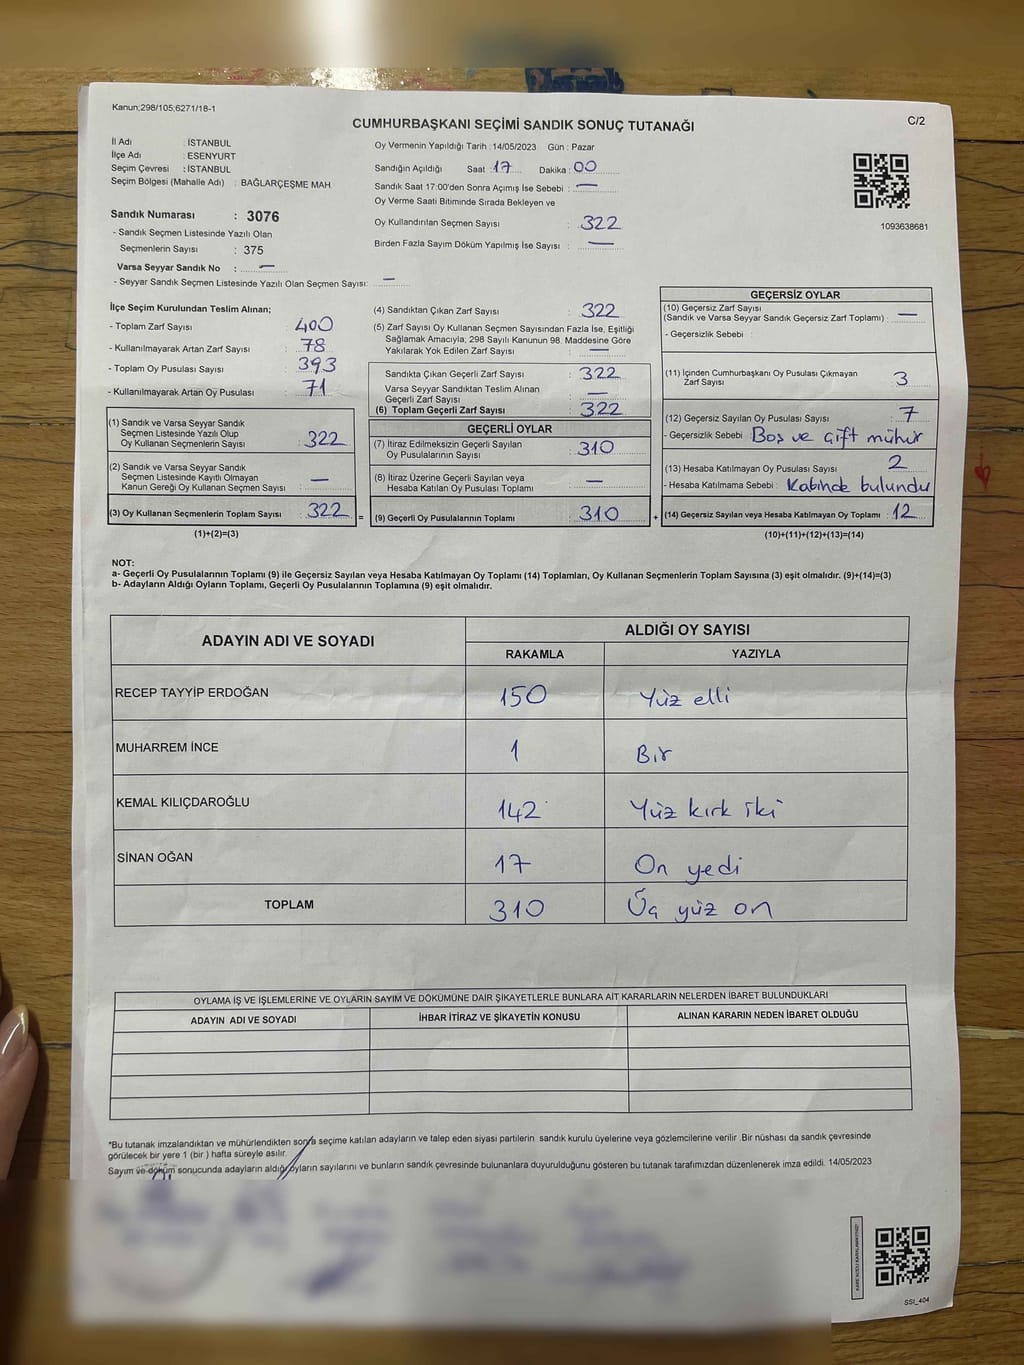 Kanun;298/105;6271/18-1
C/2
CUMHURBAŞKANI SEÇİMİ SANDIK SONUÇ TUTANAĞI
İl Adı : İSTANBUL
İlçe Adı : ESENYURT
Seçim Çevresi : İSTANBUL
Seçim Bölgesi (Mahalle Adı) : BAĞLARÇEŞME MAH
Sandık Numarası : 3076
- Sandık Seçmen Listesinde Yazılı Olan
Seçmenlerin Sayısı : 375
Varsa Seyyar Sandık No : —
- Seyyar Sandık Seçmen Listesinde Yazılı Olan Seçmen Sayısı: —
Oy Vermenin Yapıldığı Tarih : 14/05/2023 Gün : Pazar
Sandığın Açıldığı Saat : 17 Dakika : 00
Sandık Saat 17:00'den Sonra Açımış İse Sebebi : —
Oy Verme Saati Bitiminde Sırada Bekleyen ve
Oy Kullandırılan Seçmen Sayısı : 322
Birden Fazla Sayım Döküm Yapılmış İse Sayısı : —
1093638681
İlçe Seçim Kurulundan Teslim Alınan;
- Toplam Zarf Sayısı : 400
- Kullanılmayarak Artan Zarf Sayısı : 78
- Toplam Oy Pusulası Sayısı : 393
- Kullanılmayarak Artan Oy Pusulası : 71
(1) Sandık ve Varsa Seyyar Sandık
Seçmen Listesinde Yazılı Olup
Oy Kullanan Seçmenlerin Sayısı : 322
(2) Sandık ve Varsa Seyyar Sandık
Seçmen Listesinde Kayıtlı Olmayan
Kanun Gereği Oy Kullanan Seçmen Sayısı : —
(3) Oy Kullanan Seçmenlerin Toplam Sayısı : 322 =
(1)+(2)=(3)
(4) Sandıktan Çıkan Zarf Sayısı : 322
(5) Zarf Sayısı Oy Kullanan Seçmen Sayısından Fazla İse, Eşitliği
Sağlamak Amacıyla; 298 Sayılı Kanunun 98. Maddesine Göre
Yakılarak Yok Edilen Zarf Sayısı : —
Sandıkta Çıkan Geçerli Zarf Sayısı : 322
Varsa Seyyar Sandıktan Teslim Alınan
Geçerli Zarf Sayısı : —
(6) Toplam Geçerli Zarf Sayısı : 322
GEÇERLİ OYLAR
(7) İtiraz Edilmeksizin Geçerli Sayılan
Oy Pusulalarının Sayısı : 310
(8) İtiraz Üzerine Geçerli Sayılan veya
Hesaba Katılan Oy Pusulası Toplamı : —
(9) Geçerli Oy Pusulalarının Toplamı : 310 +
GEÇERSİZ OYLAR
(10) Geçersiz Zarf Sayısı
(Sandık ve Varsa Seyyar Sandık Geçersiz Zarf Toplamı) : —
- Geçersizlik Sebebi :
(11) İçinden Cumhurbaşkanı Oy Pusulası Çıkmayan
Zarf Sayısı 3
(12) Geçersiz Sayılan Oy Pusulası Sayısı : 7
- Geçersizlik Sebebi : Boş ve çift mühür
(13) Hesaba Katılmayan Oy Pusulası Sayısı : 2
- Hesaba Katılmama Sebebi : Kabinde bulundu
(14) Geçersiz Sayılan veya Hesaba Katılmayan Oy Toplamı : 12
(10)+(11)+(12)+(13)=(14)
NOT:
a- Geçerli Oy Pusulalarının Toplamı (9) ile Geçersiz Sayılan veya Hesaba Katılmayan Oy Toplamı (14) Toplamları, Oy Kullanan Seçmenlerin Toplam Sayısına (3) eşit olmalıdır. (9)+(14)=(3)
b- Adayların Aldığı Oyların Toplamı, Geçerli Oy Pusulalarının Toplamına (9) eşit olmalıdır.
ADAYIN ADI VE SOYADI
ALDIĞI OY SAYISI
RAKAMLA YAZIYLA
RECEP TAYYİP ERDOĞAN 150 Yüz elli
MUHARREM İNCE 1 Bir
KEMAL KILIÇDAROĞLU 142 Yüz kırk iki
SİNAN OĞAN 17 On yedi
TOPLAM 310 Üç yüz on
OYLAMA İŞ VE İŞLEMLERİNE VE OYLARIN SAYIM VE DÖKÜMÜNE DAİR ŞİKAYETLERLE BUNLARA AİT KARARLARIN NELERDEN İBARET BULUNDUKLARI
ADAYIN ADI VE SOYADI İHBAR İTİRAZ VE ŞİKAYETİN KONUSU ALINAN KARARIN NEDEN İBARET OLDUĞU
*Bu tutanak imzalandıktan ve mühürlendikten sonra seçime katılan adayların ve talep eden siyasi partilerin sandık kurulu üyelerine veya gözlemcilerine verilir .Bir nüshası da sandık çevresinde
görülecek bir yere 1 (bir ) hafta süreyle asılır.
Sayım ve döküm sonucunda adayların aldığı oyların sayılarını ve bunların sandık çevresinde bulunanlara duyurulduğunu gösteren bu tutanak tarafımızdan düzenlenerek imza edildi. 14/05/2023
SSI_404